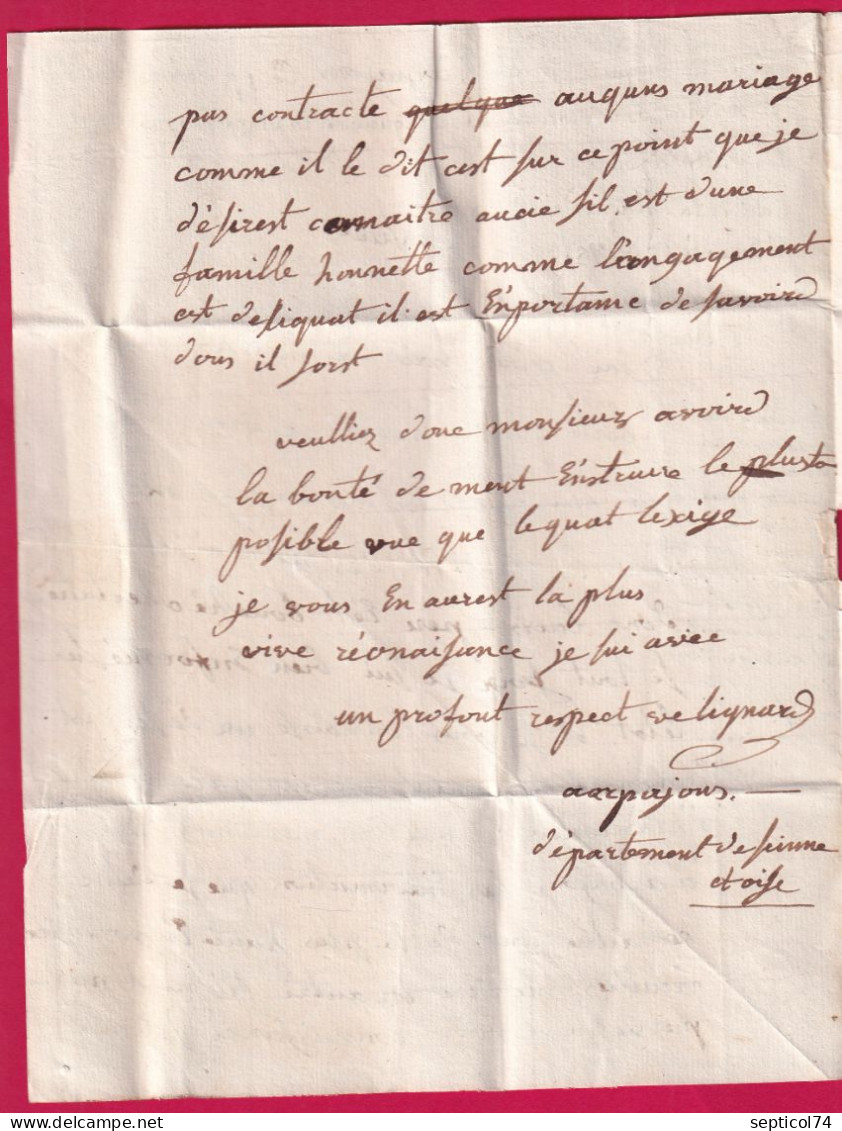 pas contracte quelque auquns mariage
comme il le dit cest sur ce point que je
désirest connaitre aucie sil est d'une
famille honnette comme l'angagement
est desiquat il est Enportame de savoird
dous il sorst
veulliez donc monsieur avoird
la bonté de ment Enstruire le plusto
posible vue que lequat lexige
je vous En aurest la plus
vive réonaisance je sui avec
un profont respect ve lignard
a arpajons. —
département de seinne
et oise
septicol74